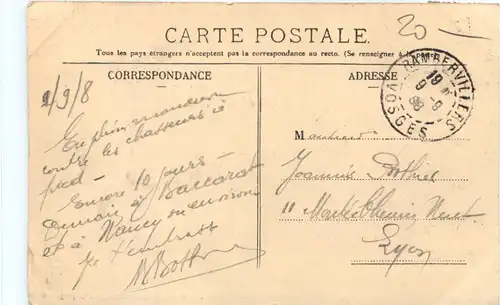 20
CARTE POSTALE.
Tous les pays étrangers n'acceptent pas la correspondance au recto. (Se renseigner à la poste)
CORRESPONDANCE
ADRESSE
RAMBERVILLERS
VOSGES
19
9-9
08
9/9/8
En plein manœuvre
contre les chasseurs à
pied -
Encore 10 jours -
Demain à Baccarat
et à Nancy ou environs
Je t'embrasse
M
Joannès
11 Montée
Lyon